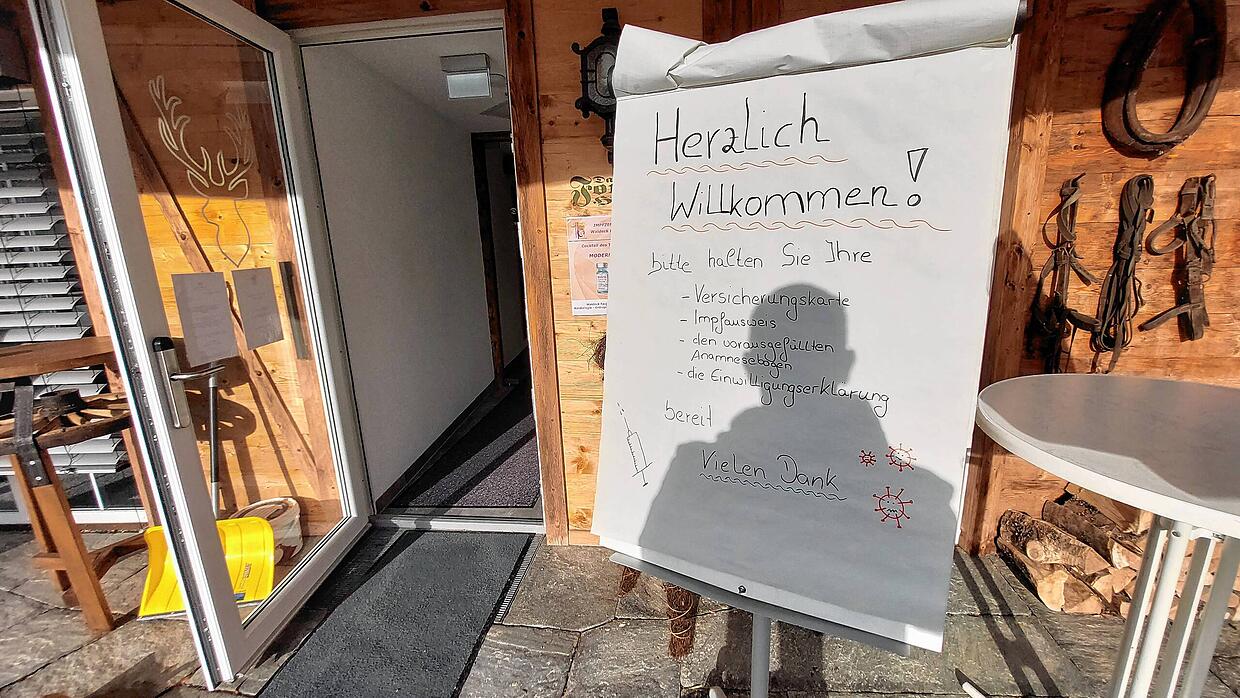 Herzlich
Willkommen!
bitte halten Sie Ihre
- Versicherungskarte
- Impfausweis
- den vorausgefüllten
Anamnesebogen
- die Einwilligungserklärung
bereit
Vielen Dank
IMPFZE
Waldeck
Cocktail des T
MODERN